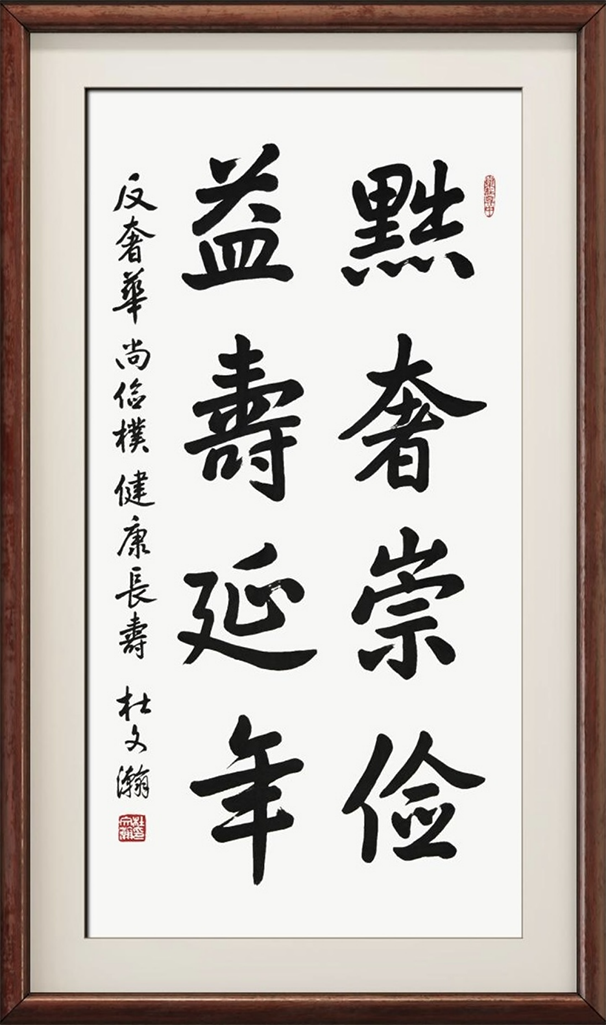 黜奢崇俭
益壽延年
反奢華尚俭樸健康長壽 杜文瀚